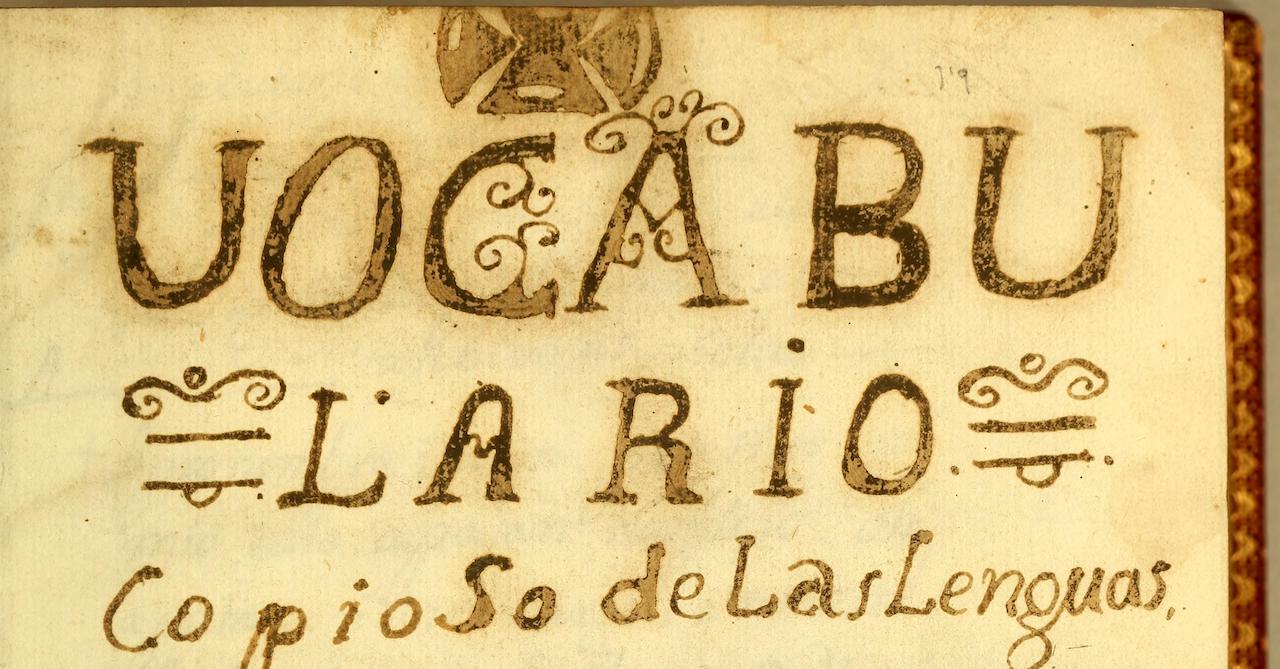 UOCABU
LARIO
Copioso de Las Lenguas,